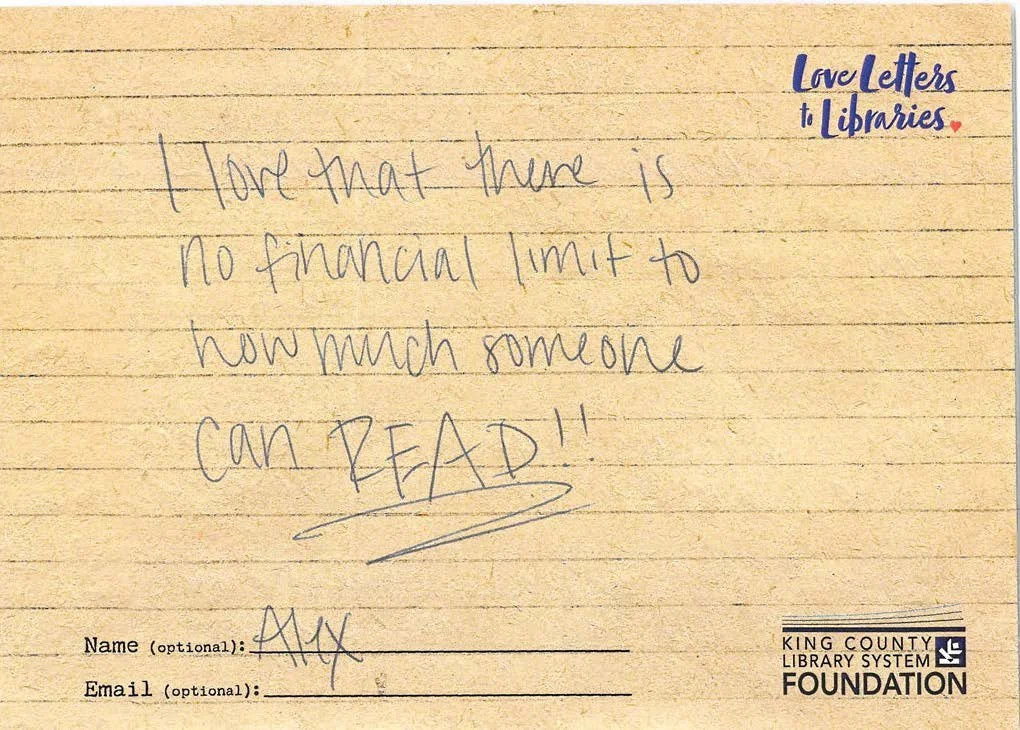 Love Letters
to Libraries
I love that there is
no financial limit to
how much someone
can READ!!
Name (optional): Alex
Email (optional):
KING COUNTY
LIBRARY SYSTEM
FOUNDATION